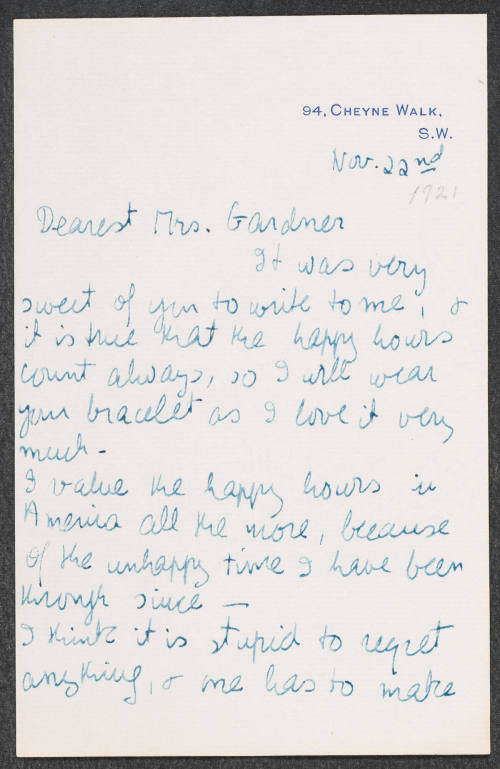 94, CHEYNE WALK,
S.W.
Nov. 22nd
1921
Dearest Mrs. Gardner
It was very
sweet of you to write to me, &
it is true that the happy hours
count always, so I will wear
your bracelet as I love it very
much -
I value the happy hours in
America all the more, because
of the unhappy time I have been
through since —
I think it is stupid to regret
anything, & one has to make